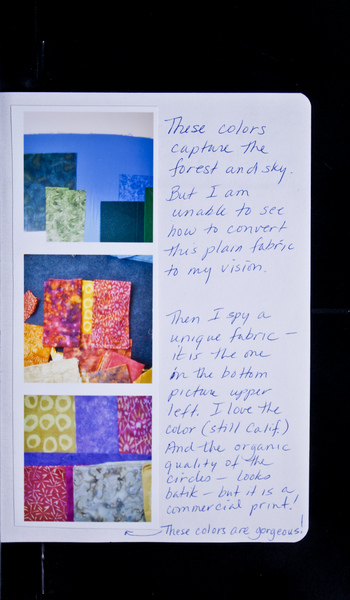 These colors
capture the
forest and sky.
But I am
unable to see
how to convert
this plain fabric
to my vision.
Then I spy a
unique fabric –
it is the one
in the bottom
picture upper
left. I love the
color (still Calif.)
And the organic
quality of the
circles – looks
batik – but it is a
commercial print!
These colors are gorgeous!